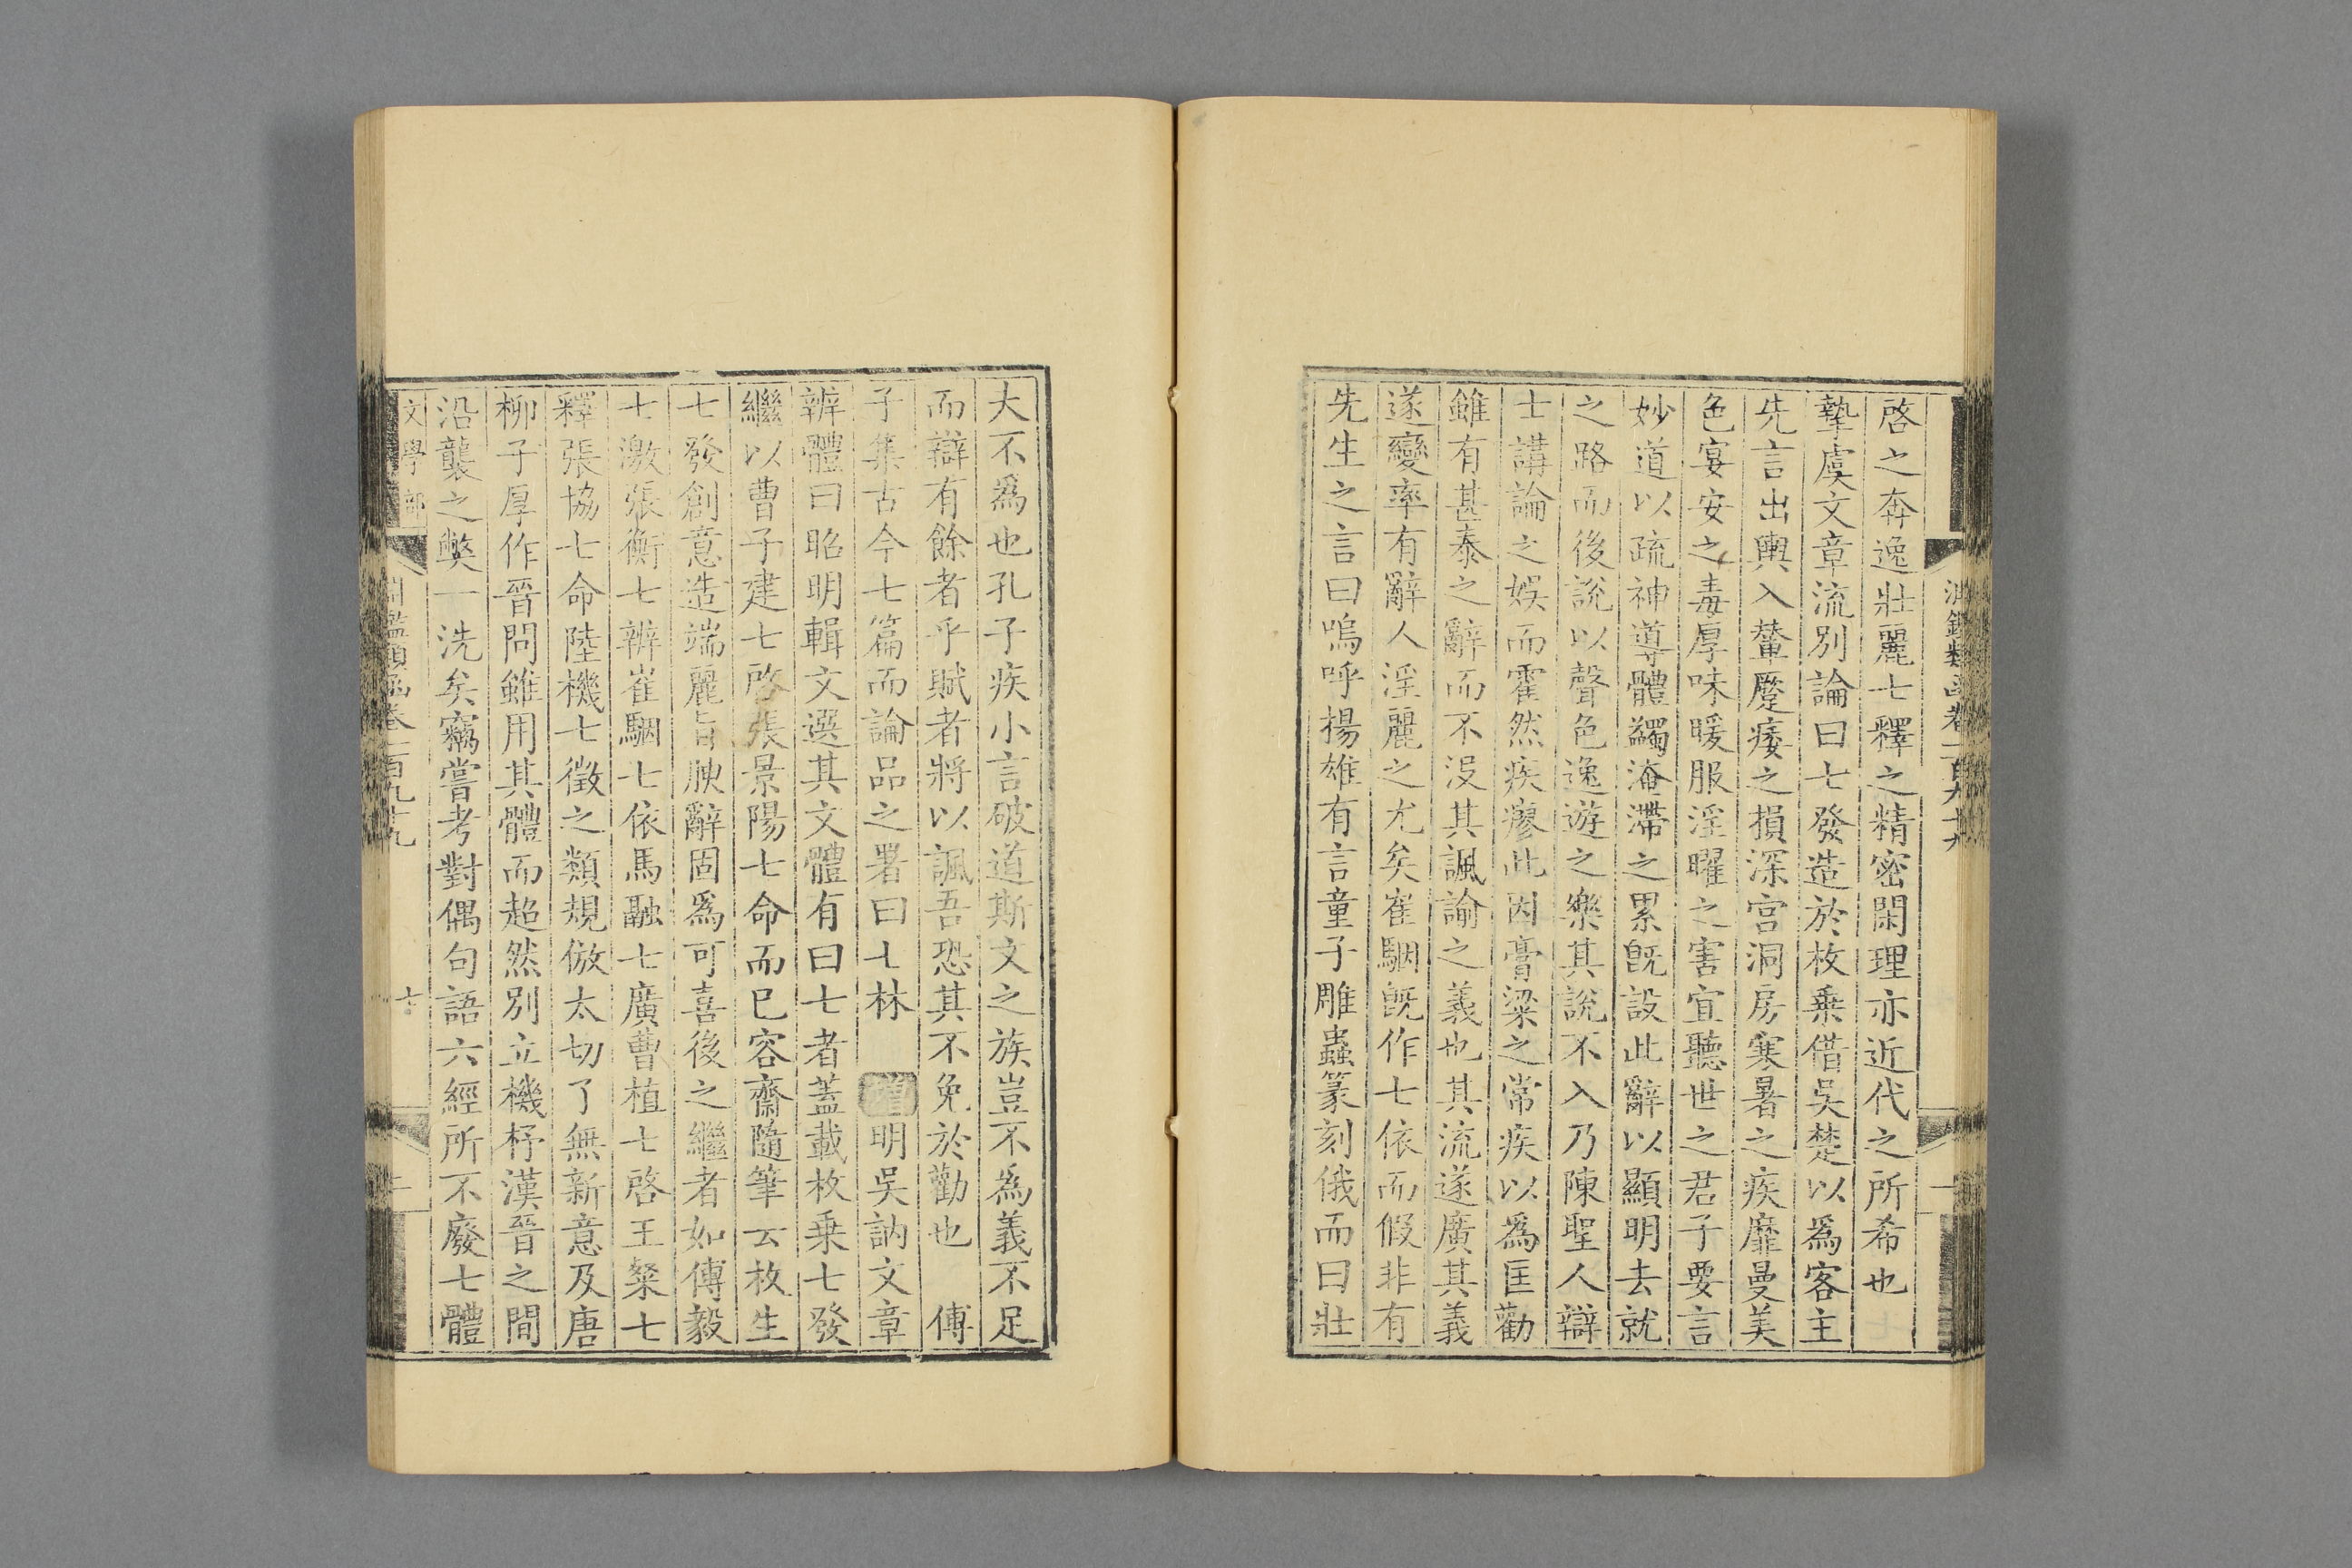 淵鑑類函卷一百九十九
啓之奔逸壯麗七釋之精密閑理亦近代之所希也
摯虞文章流别論曰七發造於枚乗借吳楚以爲客主
先言出輿入輦蹷痿之損深宫洞房寒暑之疾靡曼美
色宴安之毒厚味暖服淫曜之害宜聽世之君子要言
妙道以疏神導體蠲淹滯之累旣設此辭以顯明去就
之路而後說以聲色逸遊之樂其說不入乃陳聖人辯
士講論之娛而霍然疾瘳此因膏粱之常疾以爲匡勸
雖有甚泰之辭而不没其諷諭之義也其流遂廣其義
遂變率有辭人淫麗之尤矣崔駰旣作七依而假非有
先生之言曰嗚呼揚雄有言童子雕蟲篆刻俄而曰壯
大不爲也孔子疾小言破道斯文之族豈不爲義不足
而辯有餘者乎賦者將以諷吾恐其不免於勸也　傅
子集古今七篇而論品之署曰七林　增明吳訥文章
辨體曰昭明輯文選其文體有曰七者蓋載枚乗七發
繼以曹子建七啓張景陽七命而已容齋隨筆云枚生
七發創意造端麗旨腴辭固爲可喜後之繼者如傅毅
七激張衡七辨崔駰七依馬融七廣曹植七啓王粲七
釋張協七命陸機七徵之類規倣太切了無新意及唐
柳子厚作晉問雖用其體而超然别立機杼漢晉之間
沿襲之弊一洗矣竊嘗考對偶句語六經所不廢七體
文學部
淵鑑類函卷一百九十九